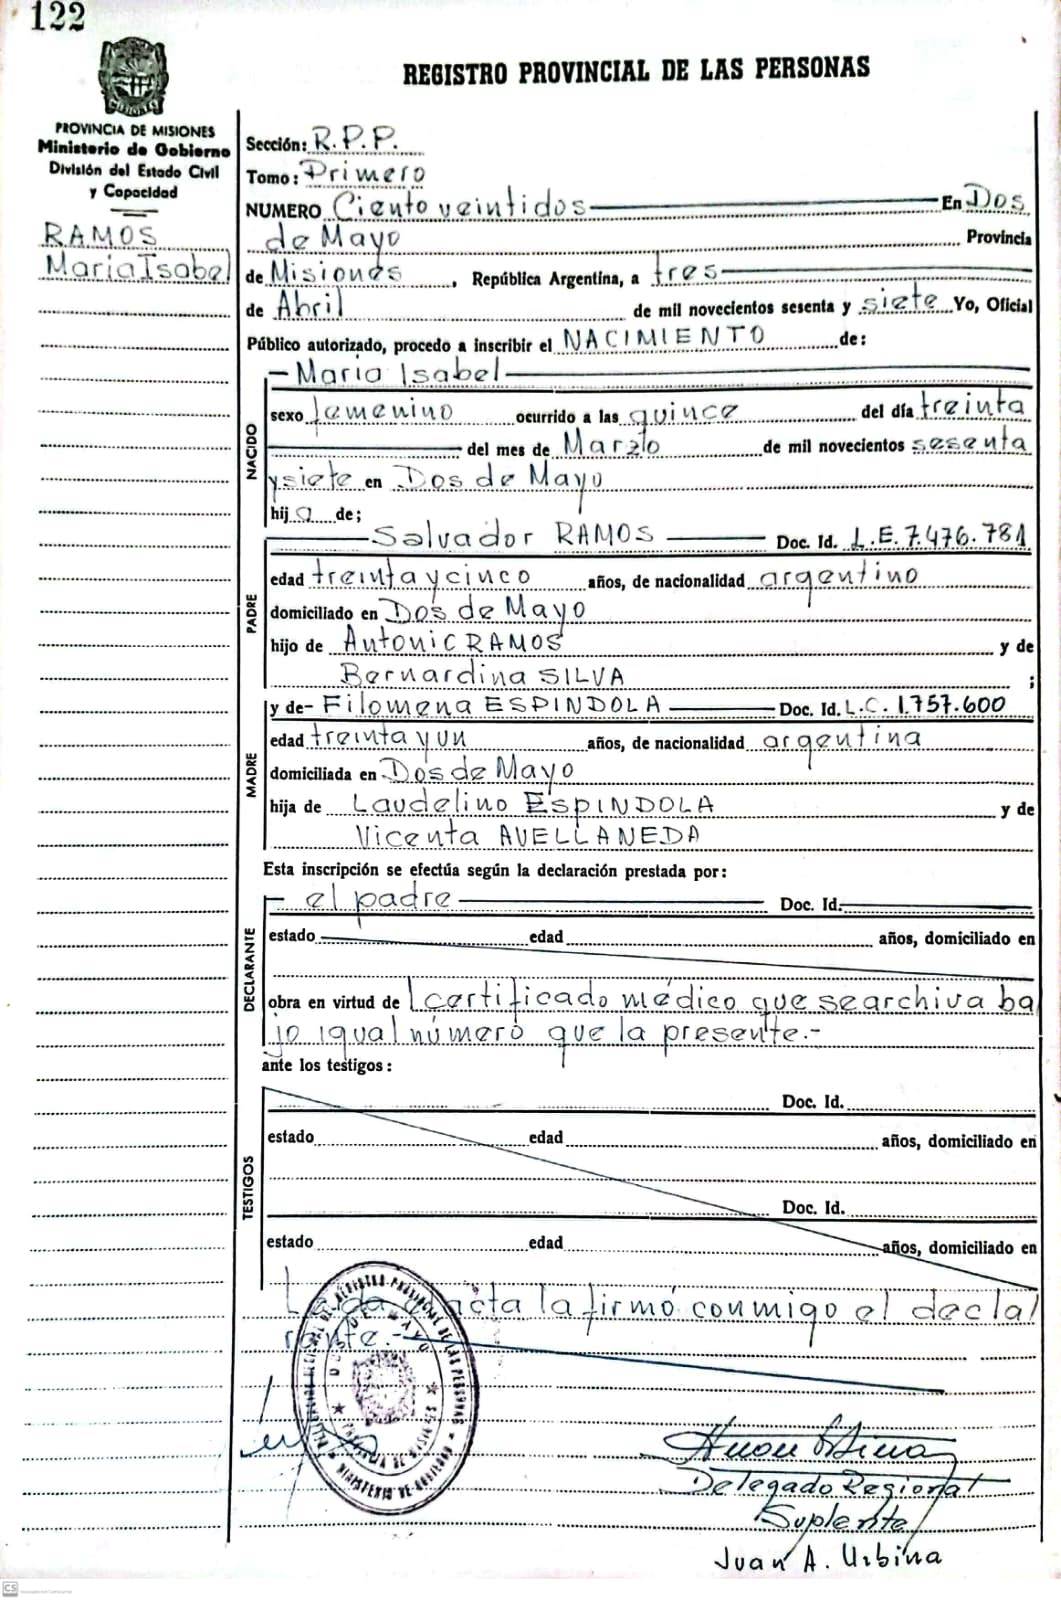 122
REGISTRO PROVINCIAL DE LAS PERSONAS
PROVINCIA DE MISIONES
Ministerio de Gobierno
División del Estado Civil
y Capacidad
RAMOS
Maria Isabel
Sección: R.P.P.
Tomo: Primero
NUMERO Ciento veintidos En Dos
de Mayo Provincia
de Misiones, República Argentina, a tres
de Abril de mil novecientos sesenta y siete Yo, Oficial
Público autorizado, procedo a inscribir el NACIMIENTO de:
NACIDO
- Maria Isabel
sexo femenino ocurrido a las quince del día treinta
del mes de Marzo de mil novecientos sesenta
y siete en Dos de Mayo
hija de;
PADRE
Salvador RAMOS Doc. Id. L.E. 7.476.781
edad treinta y cinco años, de nacionalidad argentino
domiciliado en Dos de Mayo
hijo de Antonio RAMOS y de
Bernardina SILVA ;
MADRE
y de- Filomena ESPINDOLA Doc. Id. L.C. 1.757.600
edad treinta y un años, de nacionalidad argentina
domiciliada en Dos de Mayo
hija de Laudelino ESPINDOLA y de
Vicenta AVELLANEDA
Esta inscripción se efectúa según la declaración prestada por:
DECLARANTE
- el padre Doc. Id.
estado edad años, domiciliado en
obra en virtud de certificado médico que se archiva ba
jo igual número que la presente.-
ante los testigos:
TESTIGOS
Doc. Id.
estado edad años, domiciliado en
Doc. Id.
estado edad años, domiciliado en
acta la firmó conmigo el decla
rante.-
REGISTRO PROVINCIAL DE LAS PERSONAS
DOS DE MAYO
PROVINCIA DE MISIONES
MINISTERIO DE GOBIERNO
Delegado Regional
Suplente
Juan A. Urbina
CS